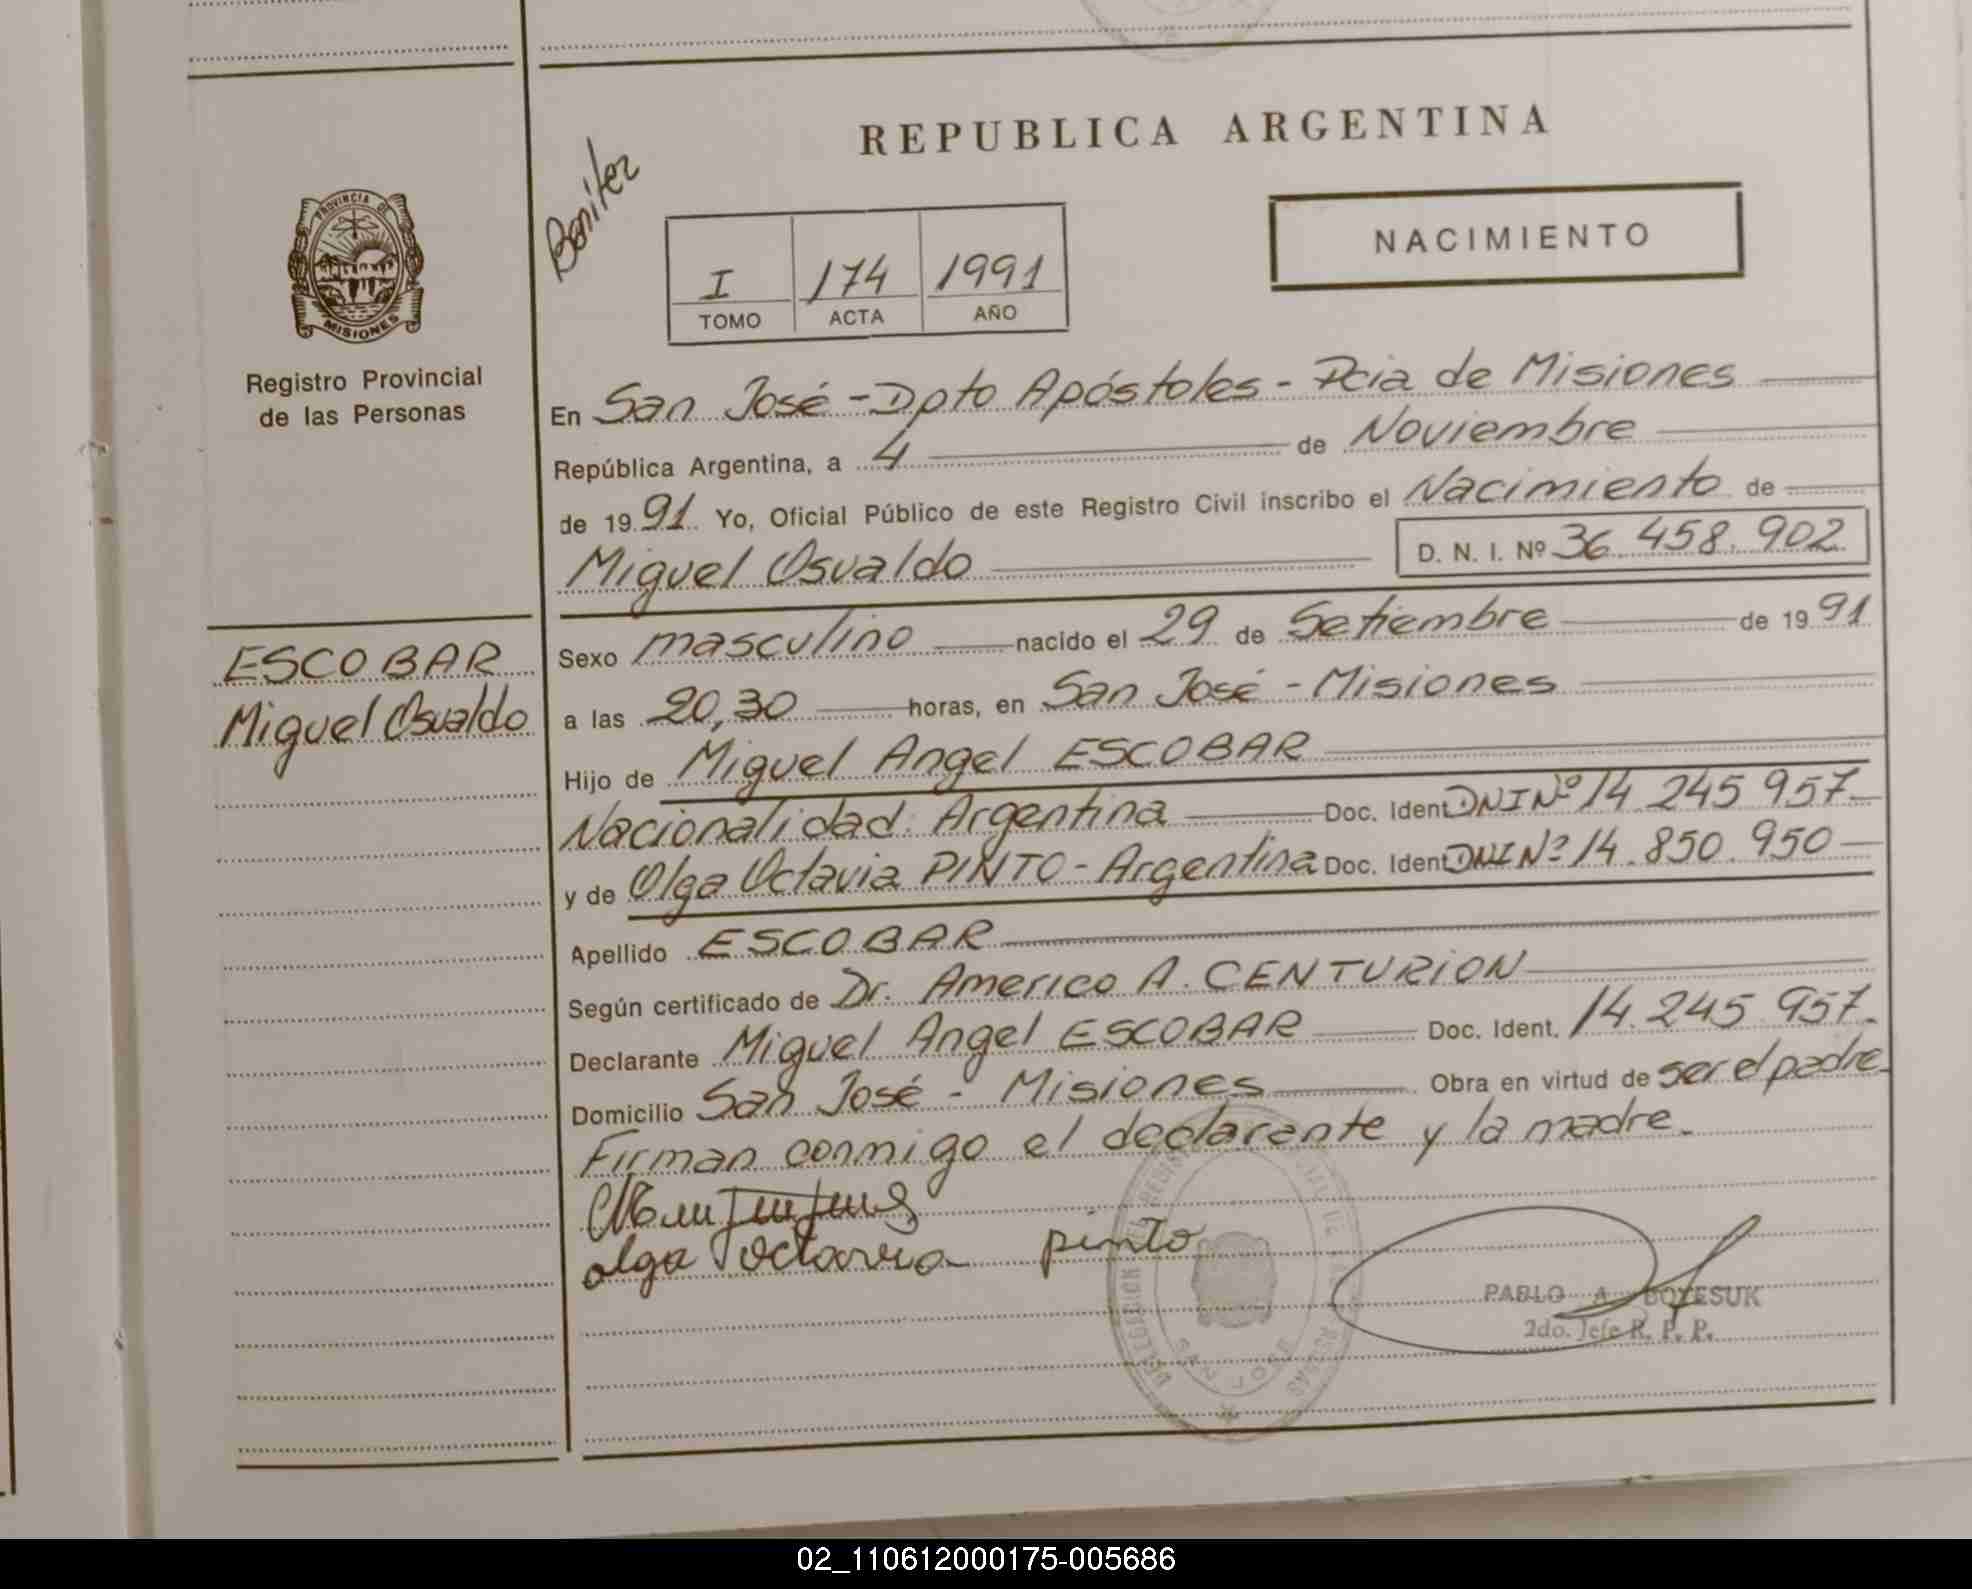 REPUBLICA ARGENTINA
Benitez
NACIMIENTO
I 174 1991
TOMO ACTA AÑO
PROVINCIA DE
MISIONES
Registro Provincial
de las Personas
En San José - Dpto Apóstoles - Pcia de Misiones
República Argentina, a 4 de Noviembre
de 1991 Yo, Oficial Público de este Registro Civil inscribo el Nacimiento de
Miguel Osvaldo D. N. I. Nº 36.458.902
ESCOBAR
Miguel Osvaldo
Sexo masculino nacido el 29 de Setiembre de 1991
a las 20,30 horas, en San José - Misiones
Hijo de Miguel Angel ESCOBAR
Nacionalidad Argentina Doc. Ident DNI Nº 14.245.957
y de Olga Octavia PINTO - Argentina Doc. Ident DNI Nº 14.850.950
Apellido ESCOBAR
Según certificado de Dr. Americo A. CENTURION
Declarante Miguel Angel ESCOBAR Doc. Ident. 14.245.957.
Domicilio San José - Misiones Obra en virtud de ser el padre
Firman conmigo el declarante y la madre.
olga octavia pinto
PABLO A. BOYESUK
2do. Jefe R. P. P.
DELEGACION DEL REGISTRO
SAN JOSE
02_110612000175-005686